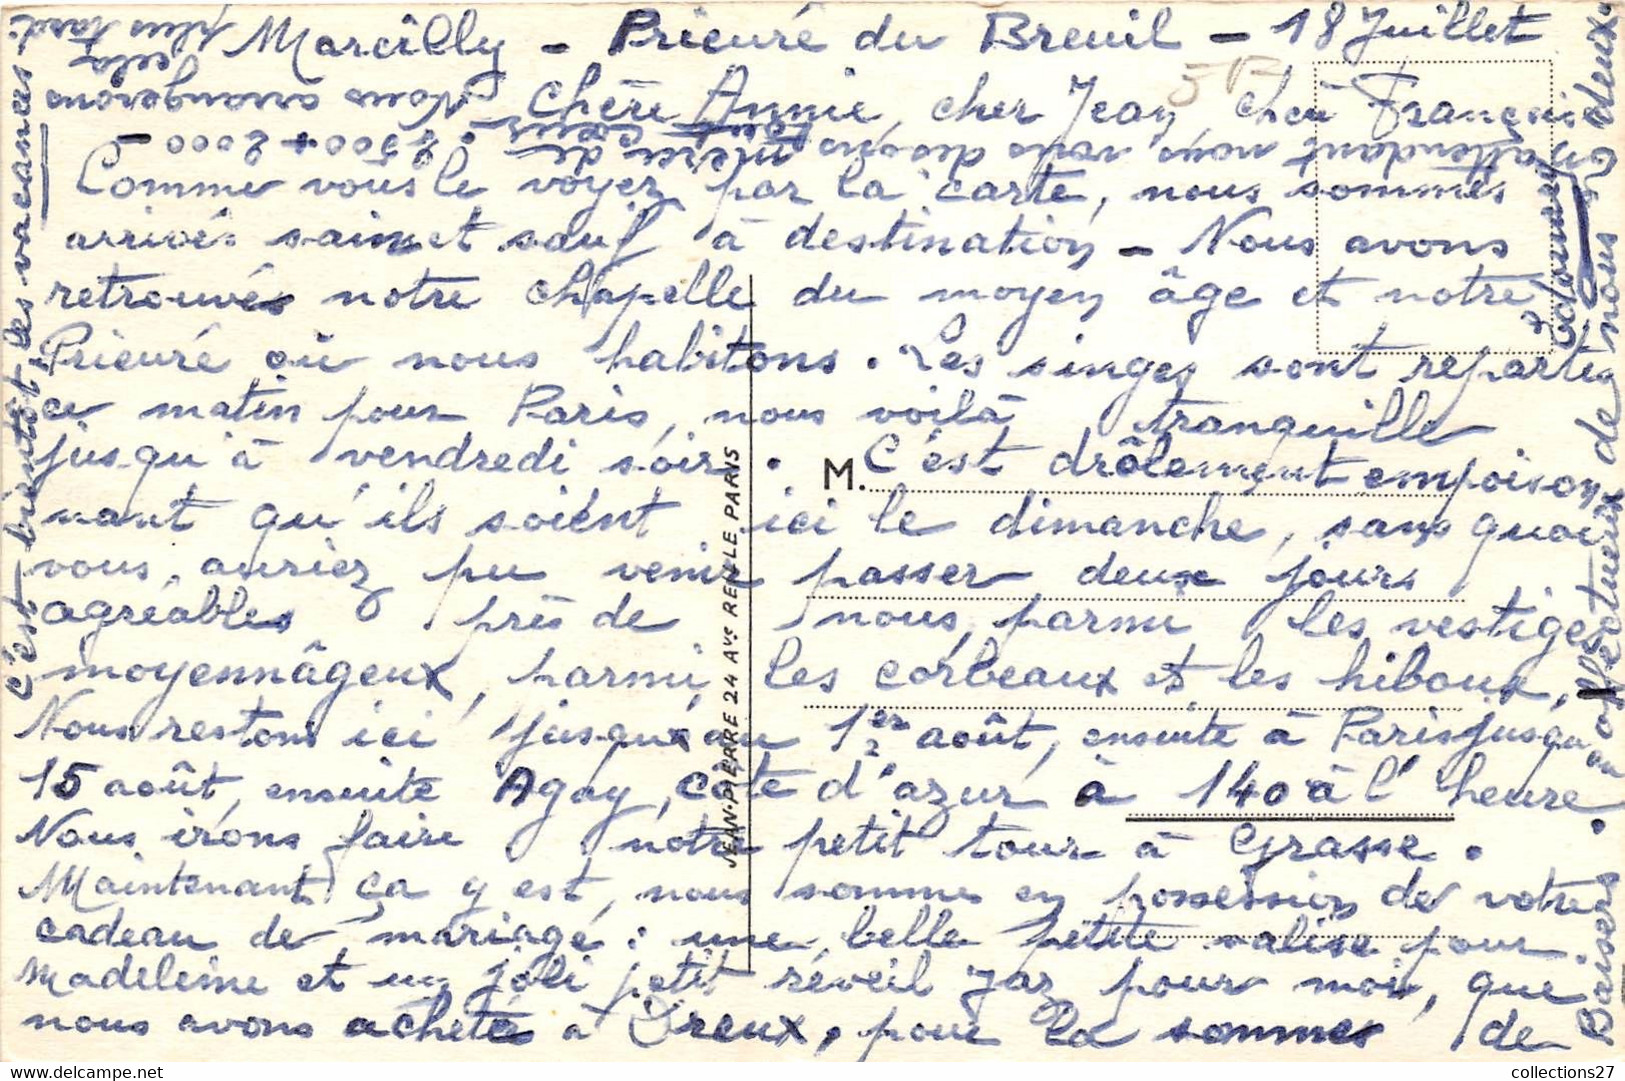 Marcilly - Prieuré du Breuil - 18 Juillet
Chère Annie, cher Jean, cher François
Comme vous le voyez par la carte, nous sommes
arrivés sain et sauf à destination - Nous avons
retrouvés notre chapelle du moyen âge et notre
Prieuré où nous habitons. Les singes sont repartis
ce matin pour Paris, nous voilà tranquille
jusqu'à vendredi soir. C'est drôlement empoison
nant qu'ils soient ici le dimanche, sans quoi
vous auriez pu venir passer deux jours
agréables près de nous, parmi les vestiges
moyennâgeux, parmi les corbeaux et les hiboux,
Nous restons ici jusqu'au 1er août, ensuite à Paris jusqu'au
15 août, ensuite Agay, cote d'azur à 140 à l'heure.
Nous irons faire notre petit tour à Grasse.
Maintenant ça y est, nous sommes en possession de votre
cadeau de mariage : une belle petite valise pour
Madeleine et un joli petit réveil Jaz pour moi, que
nous avons acheté à Dreux, pour la sommes de
2500 + 2000 -
Nous songerons
cela
plus tard.
En attendant nous vous disons
merci de tout coeur.
C'est bientôt les vacances
Baisers affectueux de nous deux.
Edouard
M.
JEAN-PIERRE 24 AVE REILLE PARIS
5 B
collections27